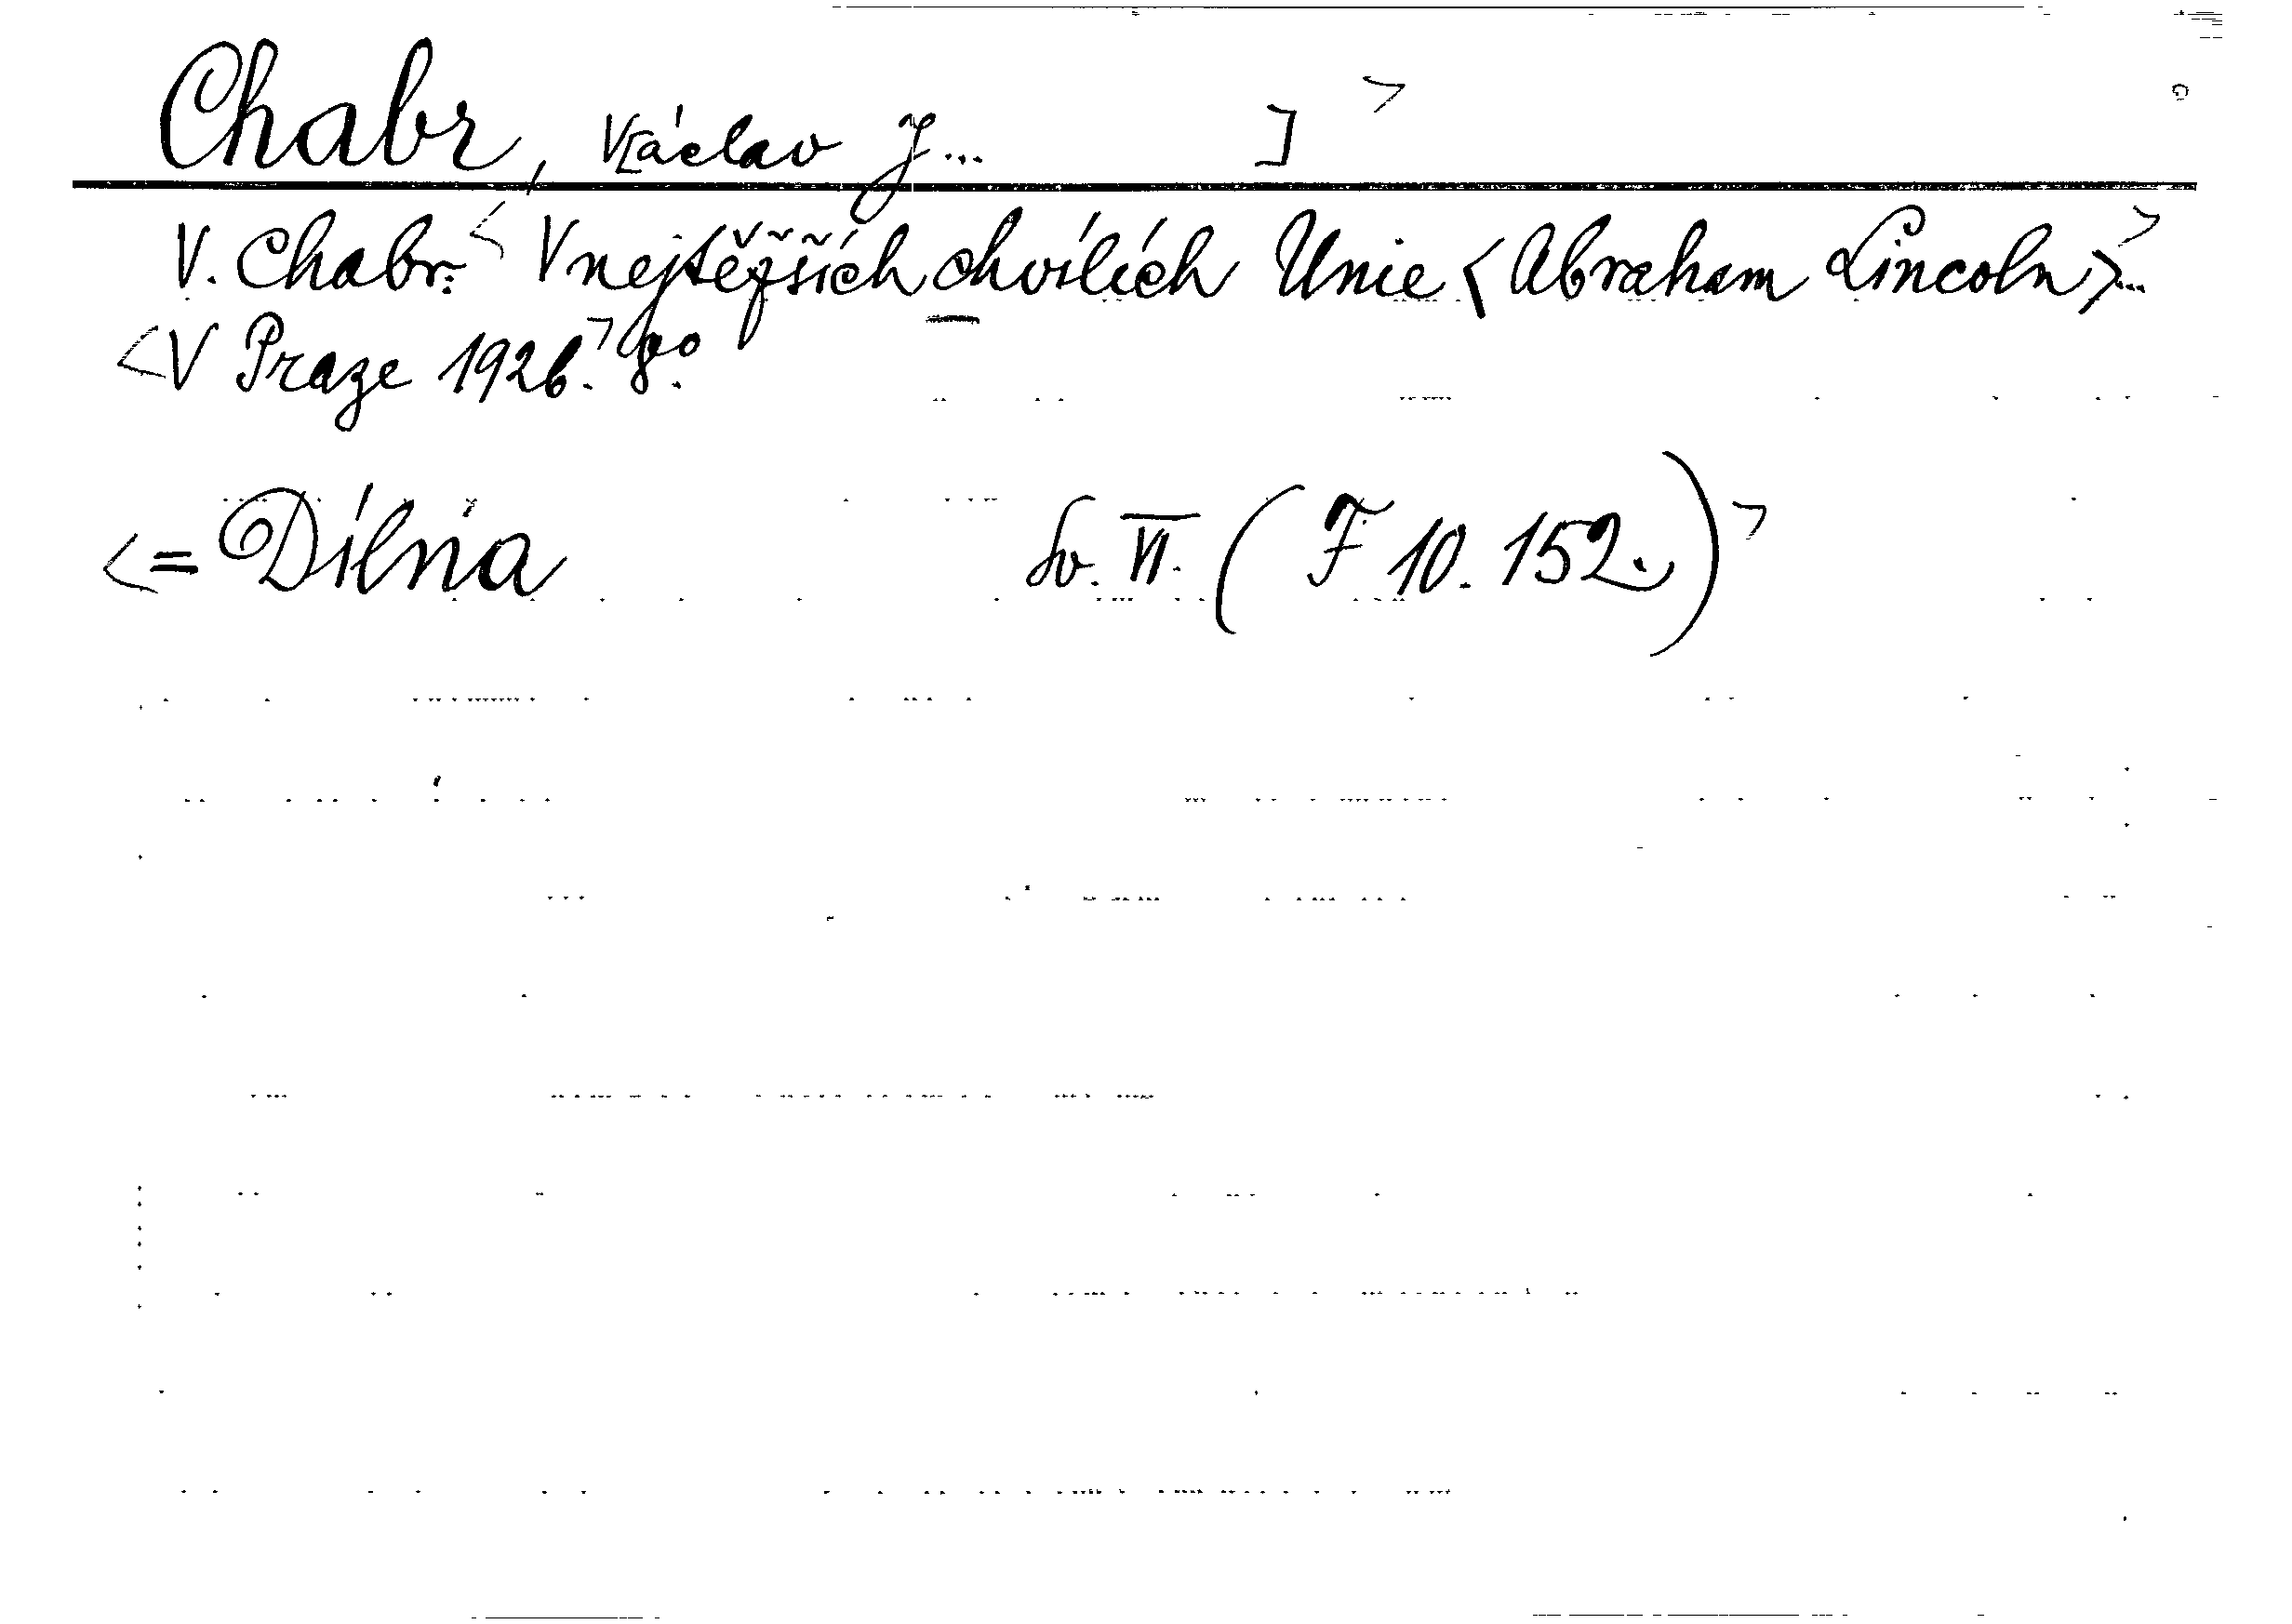 Chabr, V[áclav J... ]>
V. Chabr: <V nejtěžších chvílích Unie <Abraham Lincoln>...>
<V Praze 1926.> 8o.
<= Dílna sv. VI. (F 10. 152.)>